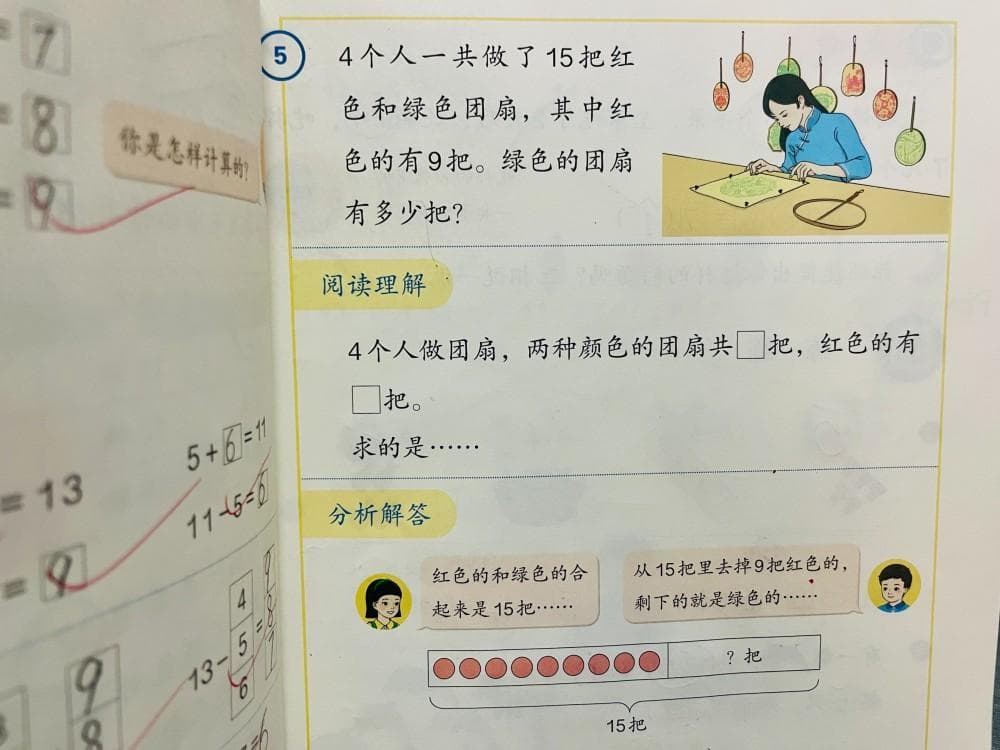 = 7
= 8
= 9
你是怎样计算的?
5+6=11
= 13
11-5=6
= 9
4
9
13- 5 = 8
6
7
9
8
=6
5
4个人一共做了15把红
色和绿色团扇，其中红
色的有9把。绿色的团扇
有多少把?
阅读理解
4个人做团扇，两种颜色的团扇共□把，红色的有
□把。
求的是……
分析解答
红色的和绿色的合
起来是15把……
从15把里去掉9把红色的，
剩下的就是绿色的……
? 把
15把